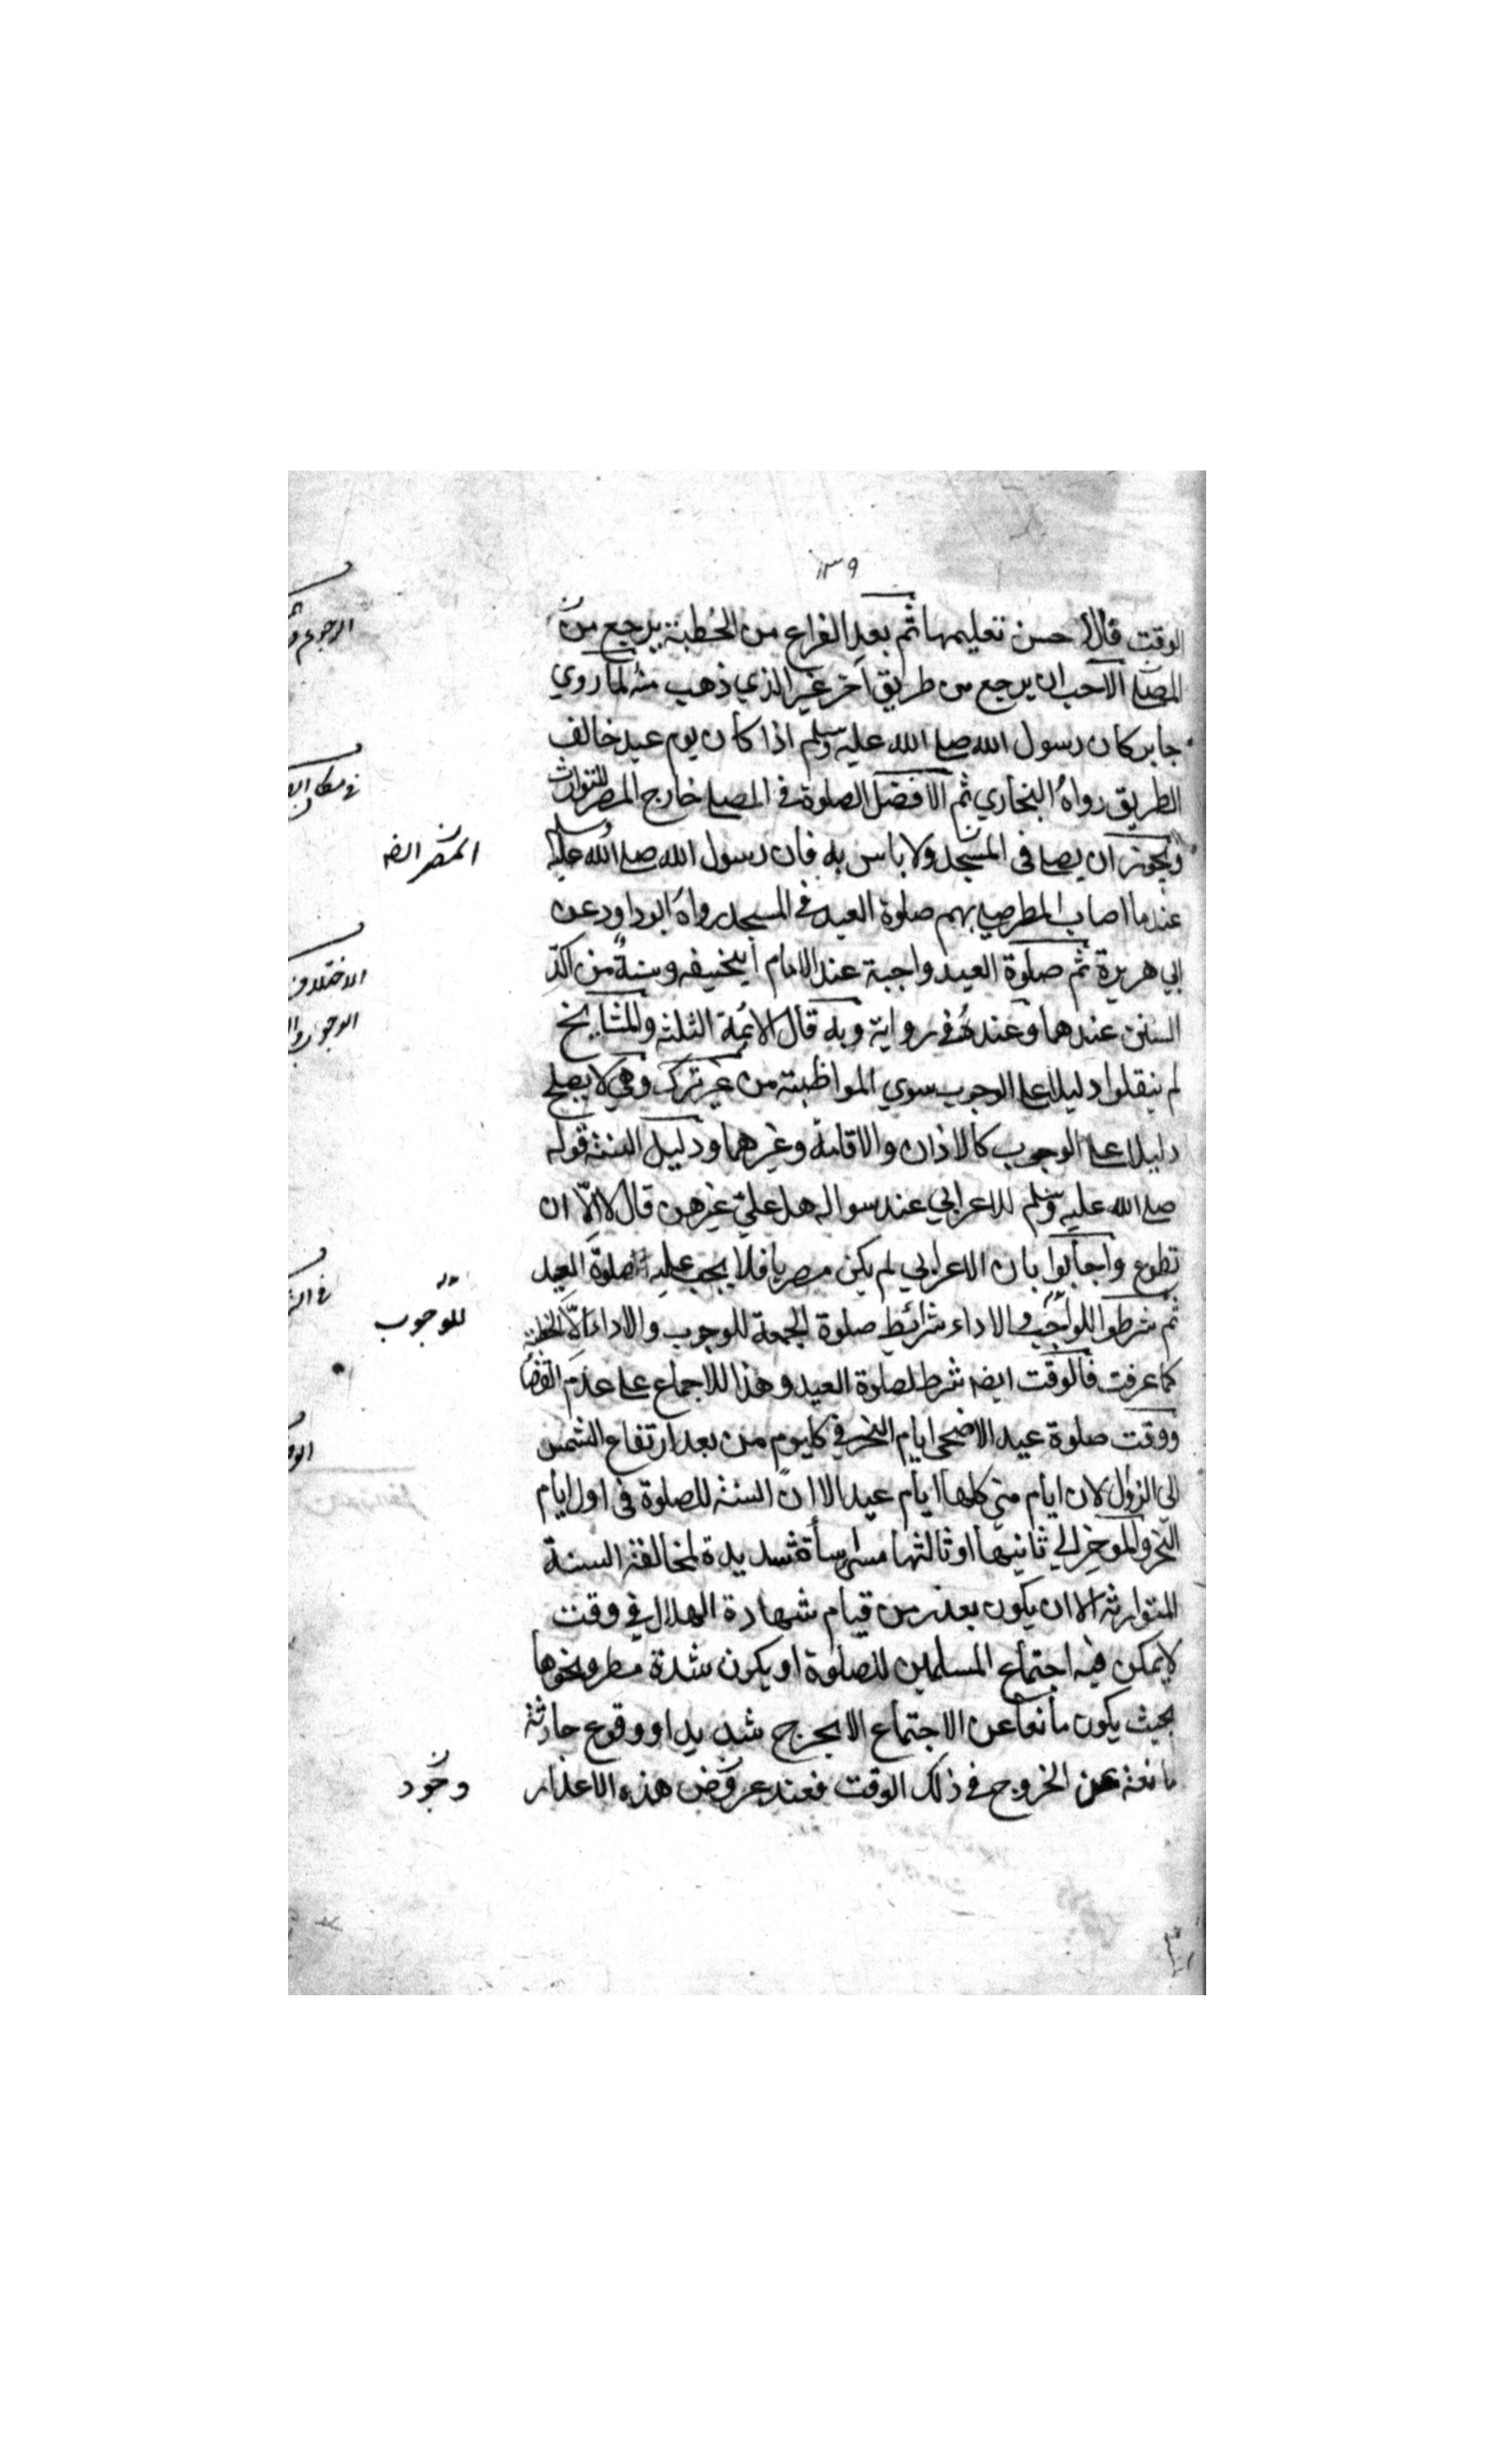 ١٣٩
الوقت قال الاحسن تعليمها ثم بعد الفراغ من الخطبة يرجع من
المصلى الاحب ان يرجع من طريق آخر غير الذي ذهب منه لما روي
جابر كان رسول الله صلى الله عليه وسلم اذا كان يوم عيد خالف
الطريق رواه البخاري ثم الافضل الصلوة في المصلى خارج المصر للتوارث
ويجوز ان يصلى في المسجد ولا باس به فان رسول الله صلى الله عليه وسلم
عندما اصاب المطر صلى بهم صلوة العيد في المسجد رواه ابو داود عن
ابي هريرة ثم صلوة العيد واجبة عند الامام ابيحنيفه وسنة من اكد
السنن عندهما وعنده في رواية وبه قال الائمة الثلثه والمشايخ
لم ينقلوا دليلا على الوجوب سوي المواظبته من غير ترك وهي لا يصلح
دليلا على الوجوب كالاذان والاقامة وغيرهما ودليل السنة قوله
صلى الله عليه وسلم للاعرابي عند سواله هل علي غيرهن قال لا الّا ان
تطوع واجابوا بان الاعرابي لم يكن مصريا فلا يجب عليه صلوة العيد
ثم شرطوا للواجب والاداء شرائط صلوة الجمعة للوجوب والاداء الّا الخطبة
كما عرفت فالوقت ايضه شرط لصلوة العيد وهذا للاجماع على عدم القضا
ووقت صلوة عيد الاضحى ايام النحر في كليوم من بعد ارتفاع الشمس
الى الزوال لان ايام منى كلها ايام عيد الا انّ السنة للصلوة في اول ايام
النحر والموخر الي ثانيها او ثالثها مسئ اساة شديدة لمخالفة السنة
المتوارثه الا ان يكون بعذر من قيام شهادة الهلال في وقت
لا يمكن فيه اجتماع المسلمين للصلوة او يكون شدة مطر ونحوها
بحيث يكون مانعا عن الاجتماع الا بحرج شديد او وقوع حادثة
مانعة عن الخروج في ذلك الوقت فعند عروض هذه الاعذار
الرجوع
في مكان
الاختلاف
الوجوب
للوجوب
وجود